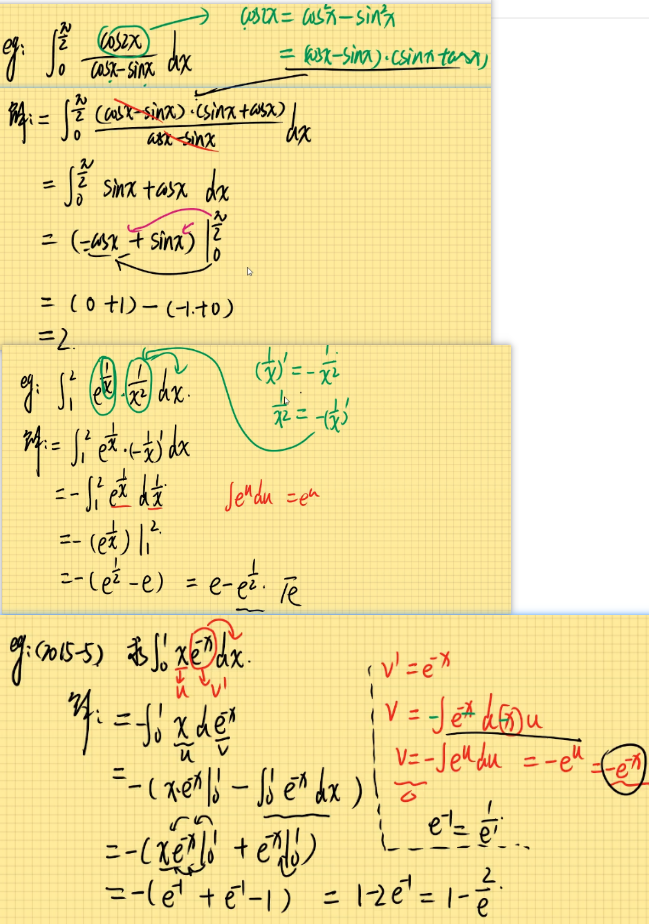 eg: ∫₀^{π/2} cos2x / (cosx-sinx) dx
cos2x = cos²x - sin²x
= (cosx-sinx)·(sinx+cosx)
解: = ∫₀^{π/2} (cosx-sinx)·(sinx+cosx) / (cosx-sinx) dx
= ∫₀^{π/2} sinx+cosx dx
= (-cosx + sinx) |₀^{π/2}
= (0+1) - (-1+0)
= 2.
eg: ∫₁² e^{1/x} · 1/x² dx.
(1/x)' = - 1/x²
1/x² = -(1/x)'
解: = ∫₁² e^{1/x} · (-1/x)' dx
= -∫₁² e^{1/x} d 1/x
∫e^u du = e^u
= -(e^{1/x}) |₁².
= -(e^{1/2} - e) = e - e^{1/2}. √e
eg: (2015-5) 求 ∫₀¹ x e^{-x} dx.
u v'
解: = -∫₀¹ x d e^{-x}
u v
= -(x·e^{-x} |₀¹ - ∫₀¹ e^{-x} dx)
= -(x e^{-x} |₀¹ + e^{-x} |₀¹)
= -(e^{-1} + e^{-1} - 1) = 1 - 2e^{-1} = 1 - 2/e.
v' = e^{-x}
v = -∫e^{-x} d(-x) u
v = -∫e^u du = -e^u = -e^{-x}
e^{-1} = 1/e¹.